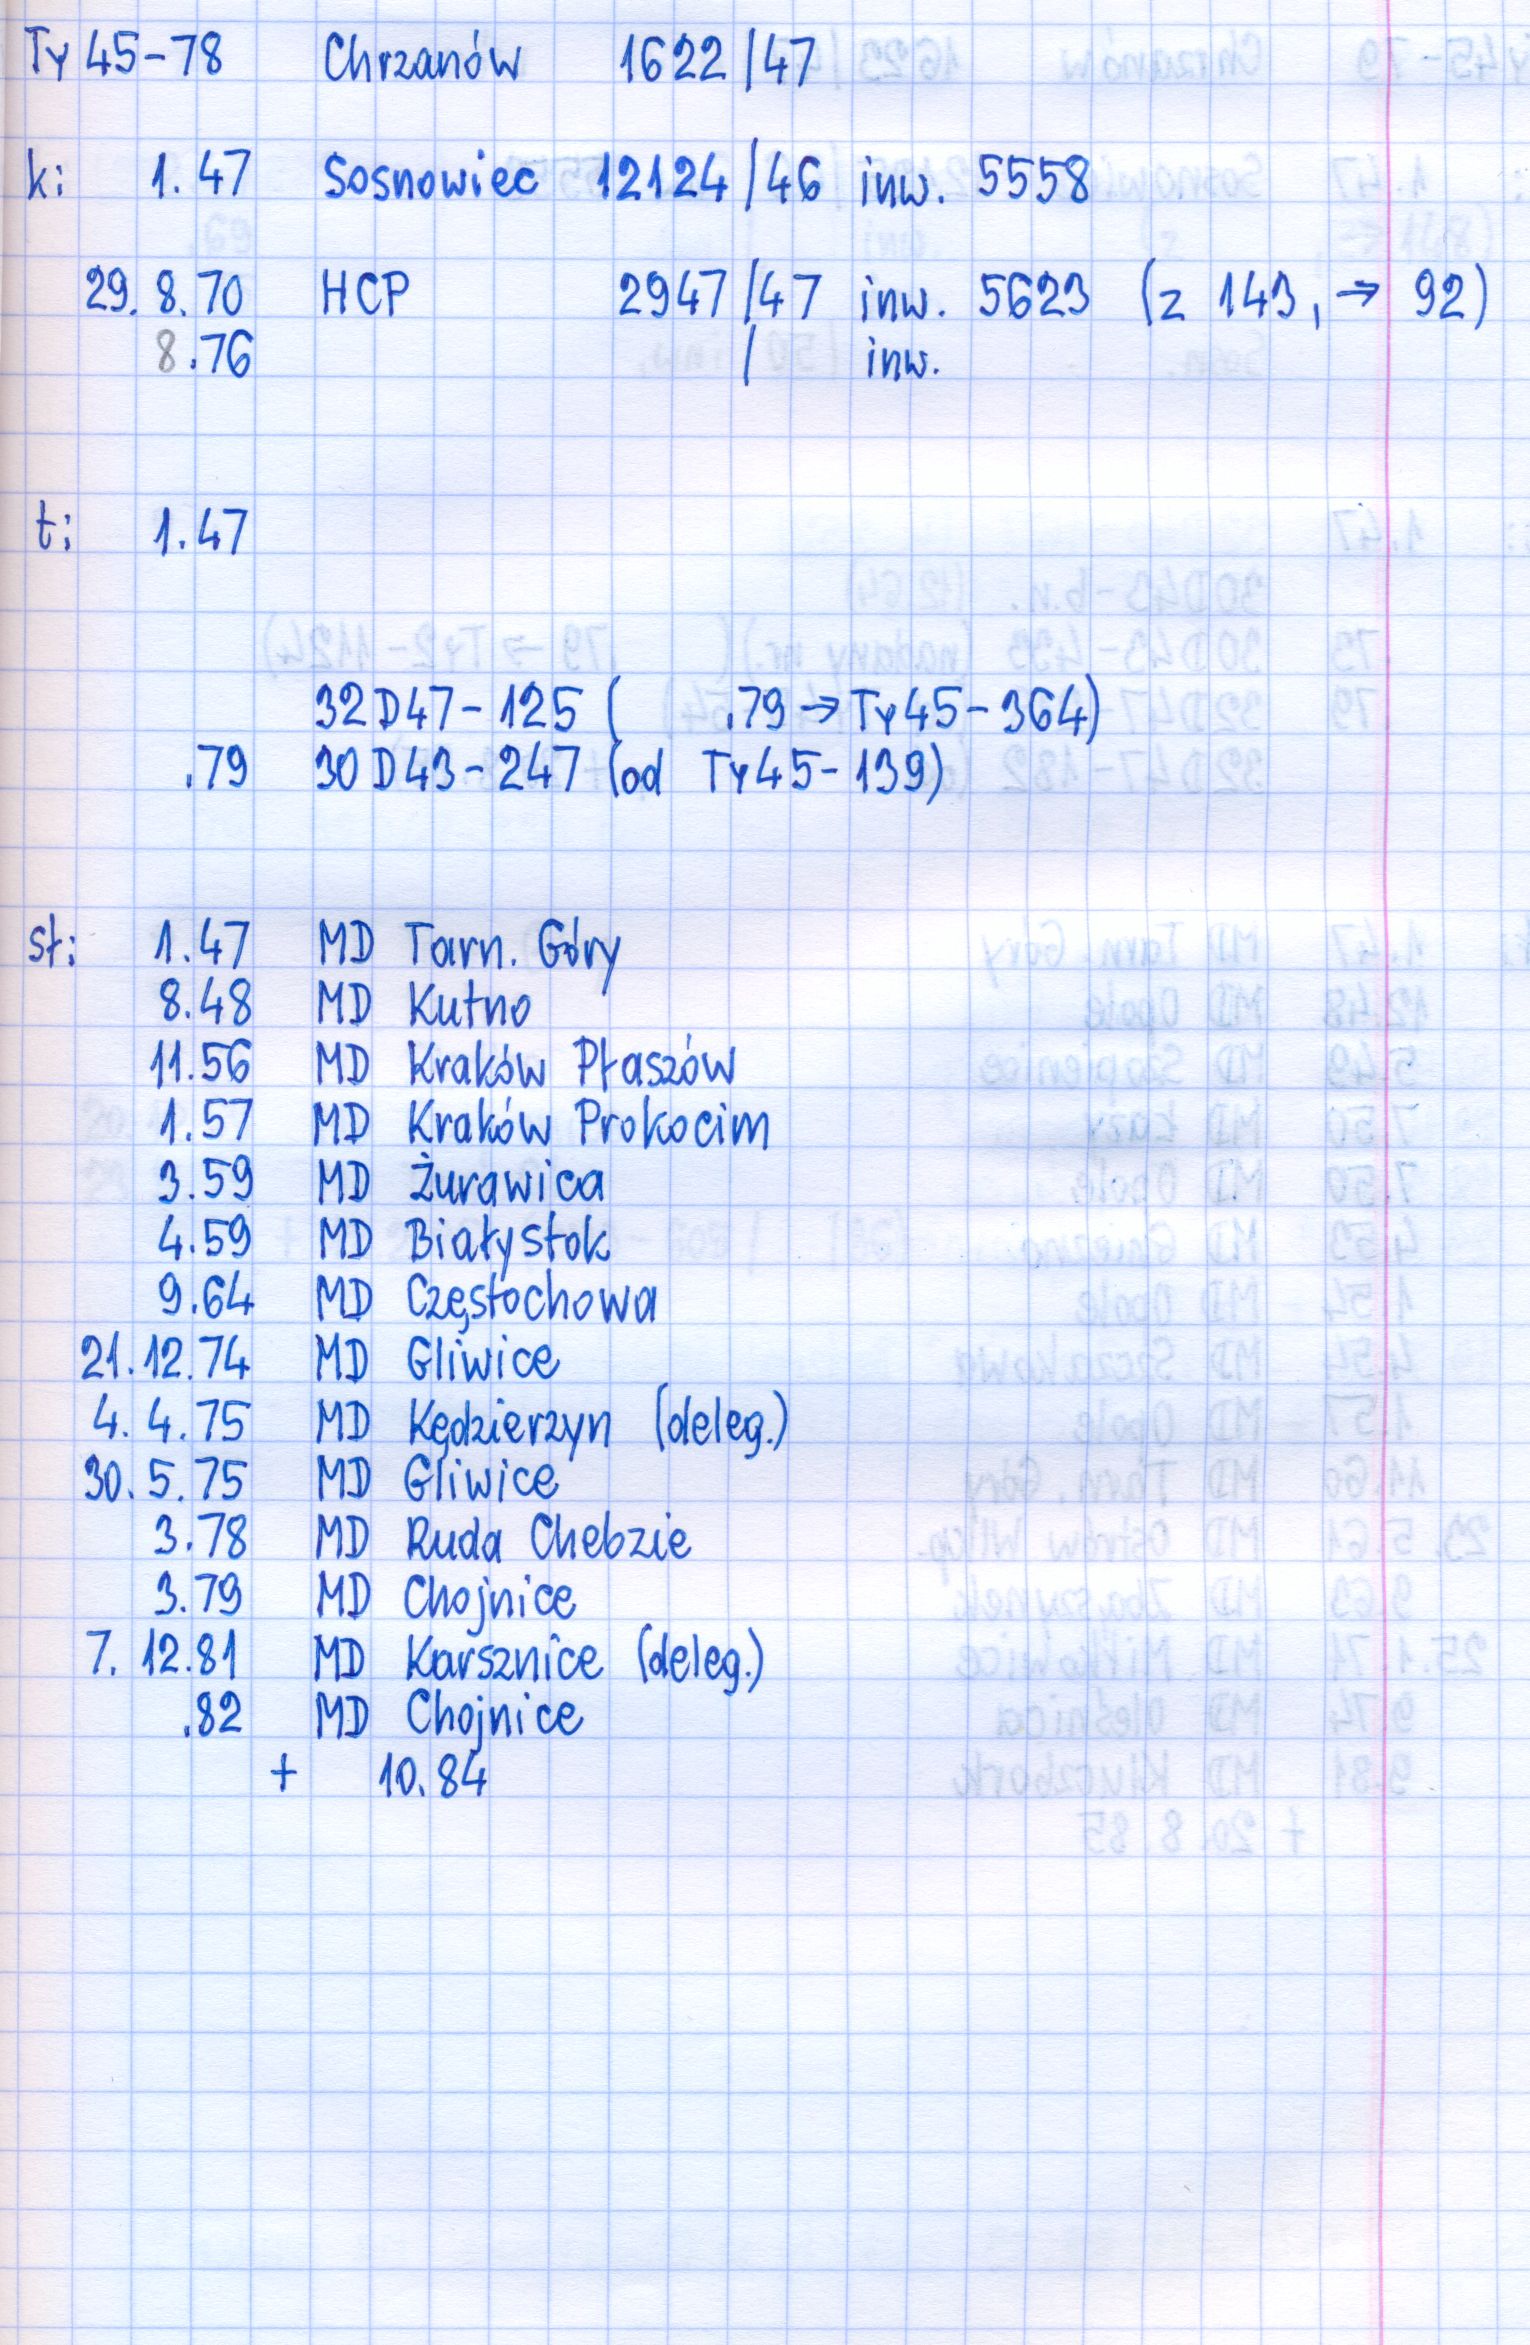 Ty 45-78 Chrzanów 1622/47
k: 1.47 Sosnowiec 12124/46 inw. 5558
29.8.70 HCP 2947/47 inw. 5623 (z 143, → 92)
8.76 / inw.
t: 1.47
32D47-125 ( .79 → Ty45-364)
.79 30D43-247 (od Ty45-139)
sł: 1.47 MD Tarn. Góry
8.48 MD Kutno
11.56 MD Kraków Płaszów
1.57 MD Kraków Prokocim
3.59 MD Żurawica
4.59 MD Białystok
9.64 MD Częstochowa
21.12.74 MD Gliwice
4.4.75 MD Kędzierzyn (deleg.)
30.5.75 MD Gliwice
3.78 MD Ruda Chebzie
3.79 MD Chojnice
7.12.81 MD Karsznice (deleg.)
.82 MD Chojnice
+ 10.84